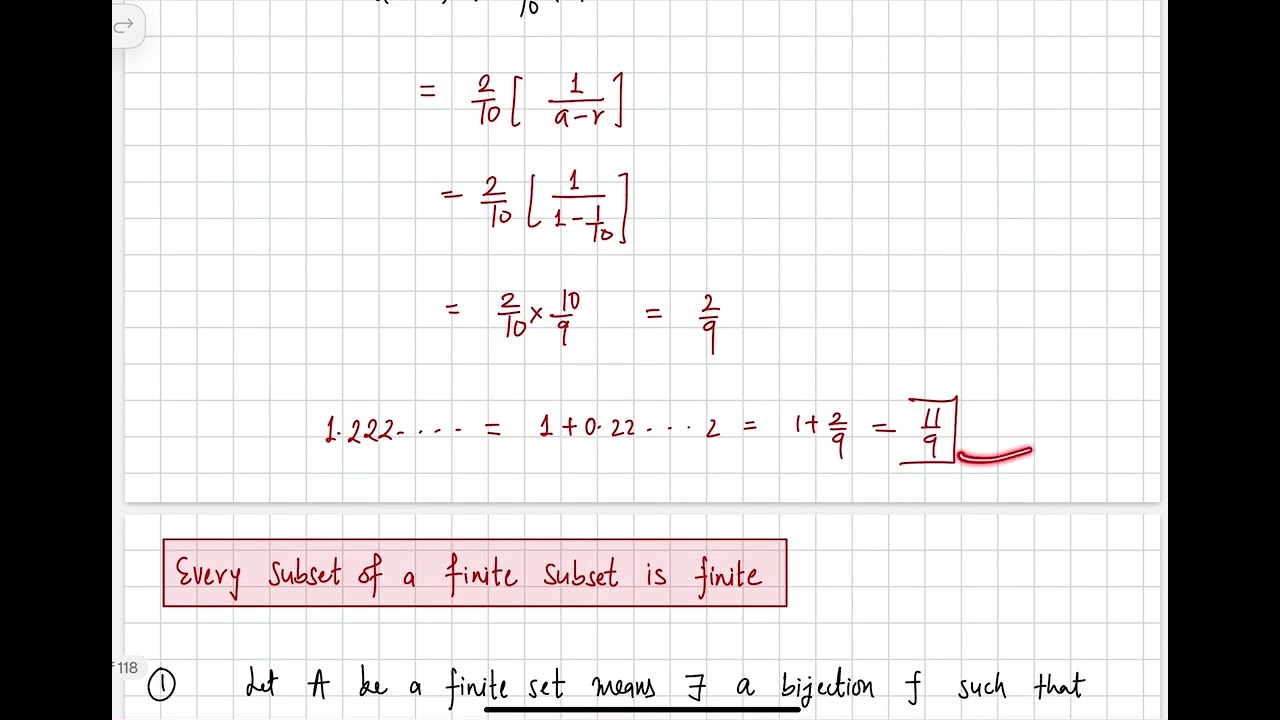 10
= 2/10 [ 1/(a-r) ]
= 2/10 [ 1/(1-1/10) ]
= 2/10 × 10/9 = 2/9
1.222..... = 1+0.22...2 = 1+2/9 = 11/9
Every subset of a finite subset is finite
118
① Let A be a finite set means ∃ a bijection f such that